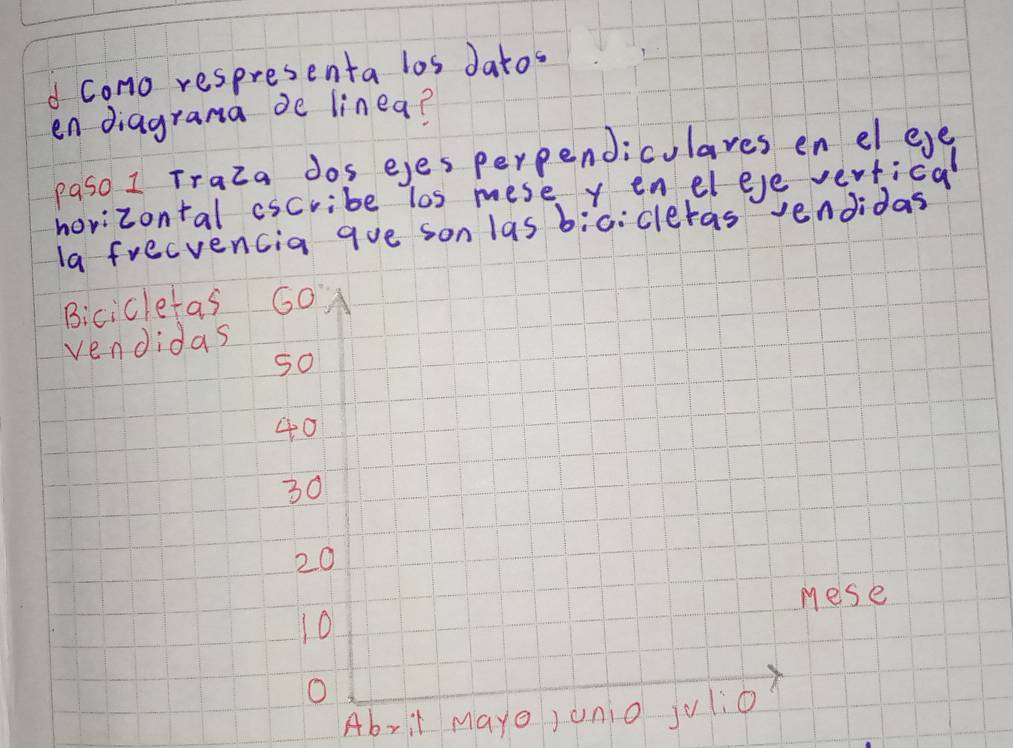 ¿ Como respresenta los datos
en diagrama de linea?
paso 1 Traza dos ejes perpendiculares en el eje
horizontal escribe los mese y en el eje vertical
la frecuencia que son las bicicletas vendidas
Bicicletas 60
vendidas
50
40
30
20
Mese
10
0
Abril Mayo junio julio